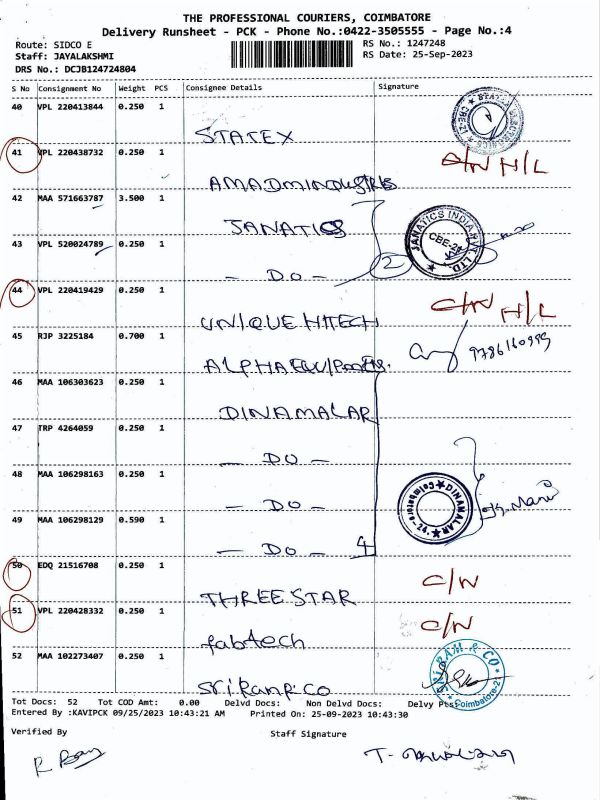 THE PROFESSIONAL COURIERS, COIMBATORE
Delivery Runsheet - PCK - Phone No.:0422-3505555 - Page No.:4
Route: SIDCO E
RS No.: 1247248
Staff: JAYALAKSHMI
RS Date: 25-Sep-2023
DRS No.: DCJB124724804
S No Consignment No Weight PCS Consignee Details Signature
40 VPL 220413844 0.250 1
STATEX
41 VPL 220438732 0.250 1
C/N H/L
AMADMINDUSTRIES
42 MAA 571663787 3.500 1
JANATICS
JANATICS INDIA PVT. LTD. CBE-21
43 VPL 520024789 0.250 1
- DO - 2
44 VPL 220419429 0.250 1
C/N H/L
UNIQUE HITECH
45 RJP 3225184 0.700 1
9786160999
46 MAA 106303623 0.250 1
DINAMALAR
47 TRP 4264059 0.250 1
- DO -
48 MAA 106298163 0.250 1
- DO -
DINAMALAR Coimbatore-24.
49 MAA 106298129 0.590 1
- DO - 4
50 EDQ 21516708 0.250 1
C/N
THREE STAR
51 VPL 220428332 0.250 1
C/N
fabtech
52 MAA 102273407 0.250 1
SRIRAM.R.CO
Sri Ram R Co
Coimbatore-2
Tot Docs: 52 Tot COD Amt: 0.00 Delvd Docs: Non Delvd Docs: Delvy Pts:
Entered By :KAVIPCK 09/25/2023 10:43:21 AM Printed On: 25-09-2023 10:43:30
Verified By
Staff Signature